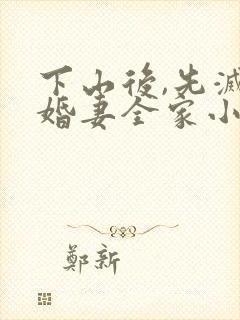 下山後,先滅
婚妻全家小
鄭新